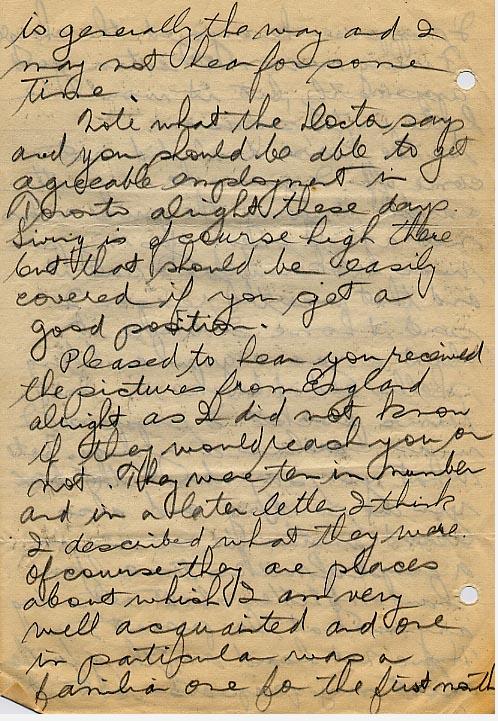 is generally the way and I
may not hear for some
time.
Note what the Doctor says
and you should be able to get
agreeable employment in
Toronto alright these days.
Living is of course high there
but that should be easily
covered if you get a
good position.
Pleased to hear you received
the pictures from England
alright as I did not know
if they would reach you or
not. They were ten in number
and in a later letter I think
I described what they were.
Of course they are places
about which I am very
well acquainted and one
in particular was a
familiar one for the first month